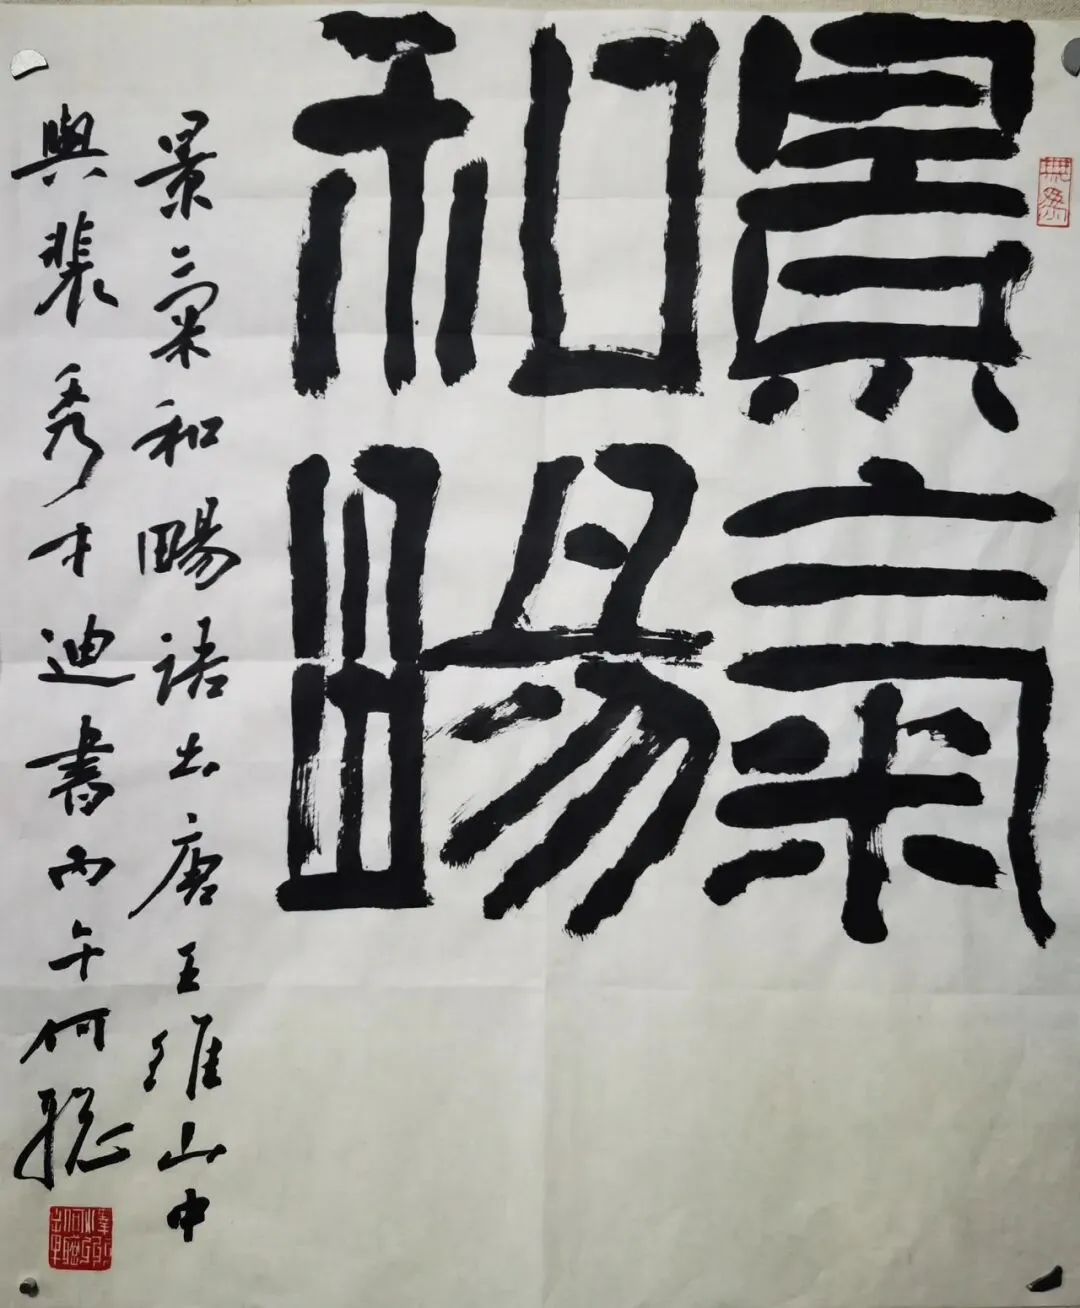 景氣
和畼
景氣和畼語出唐王維山中
與裴秀才迪書丙午何聰
無為